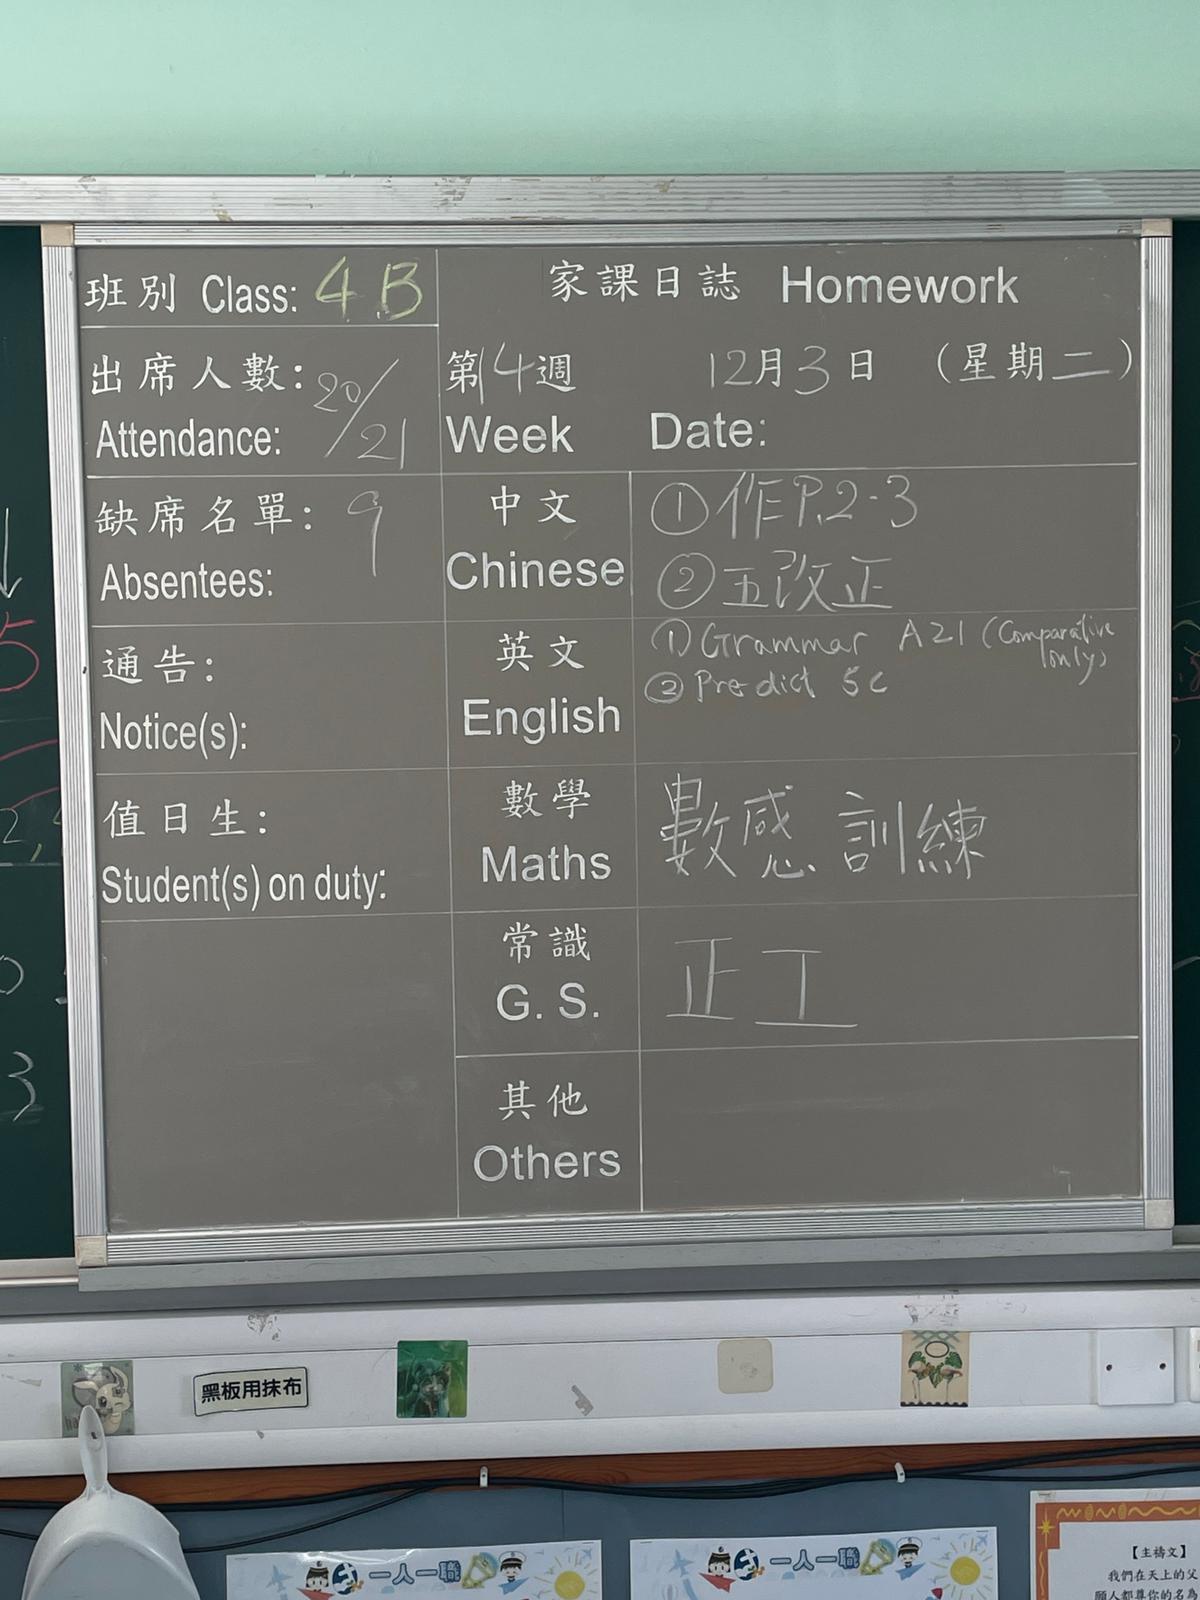 班別 Class: 4B
家課日誌 Homework
出席人數: 20/21
Attendance:
第14週 12月3日 (星期二)
Week Date:
缺席名單: 9
Absentees:
中文
Chinese
①作P.2-3
②五改正
通告:
Notice(s):
英文
English
①Grammar A21 (Comparative only)
②Predict 5c
值日生:
Student(s) on duty:
數學
Maths
數感訓練
常識
G. S.
正工
其他
Others
黑板用抹布
一人一職
一人一職
【主禱文】
我們在天上的父
願人都尊你的名為